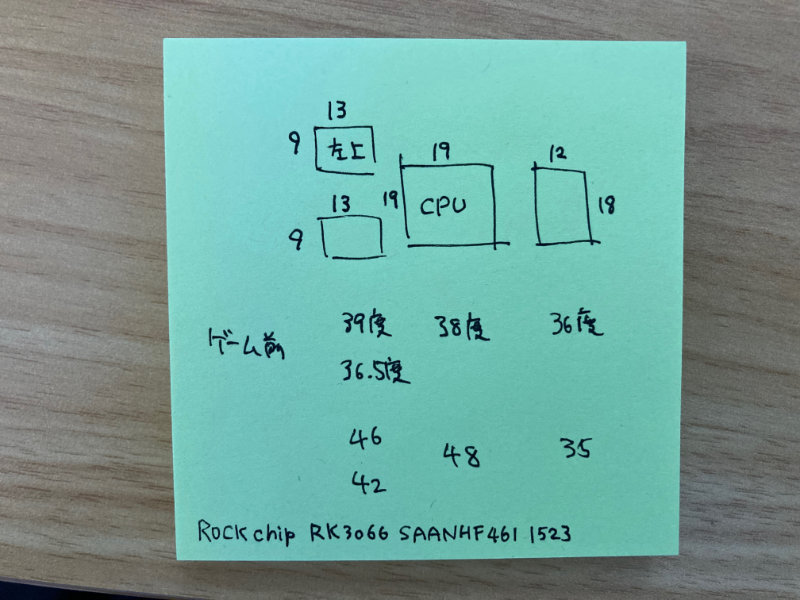 13
9 左上
19
12
13
19 CPU
18
9
ゲーム前 39度 38度 36度
36.5度
46 48 35
42
ROCKchip RK3066 SAANHF461 1523